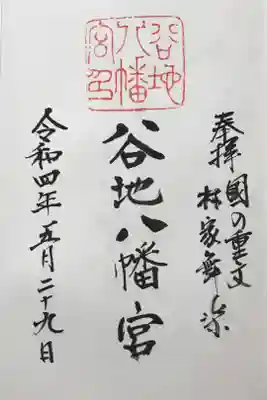 奉拝
國の重文
林家舞楽
谷地八幡宮
谷地八幡宮印
令和四年五月二十九日